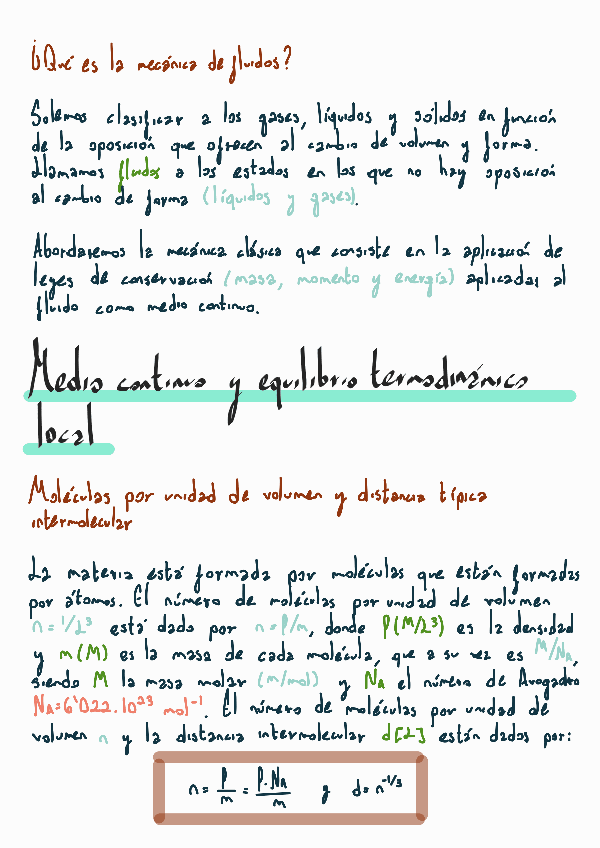 ¿Qué es la mecánica de fluidos?
Solemos clasificar a los gases, líquidos y sólidos en función
de la oposición que ofrecen al cambio de volumen y forma.
Llamamos fluidos a los estados en los que no hay oposición
al cambio de forma (líquidos y gases).
Abordaremos la mecánica clásica que consiste en la aplicación de
leyes de conservación (masa, momento y energía) aplicadas al
fluido como medio continuo.
Medio continuo y equilibrio termodinámico
local
Moléculas por unidad de volumen y distancia típica
intermolecular
La materia está formada por moléculas que están formadas
por átomos. El número de moléculas por unidad de volumen
n = 1/L³ está dado por n = ρ/m, donde ρ(M/L³) es la densidad
y m(M) es la masa de cada molécula, que a su vez es M/NA,
siendo M la masa molar (m/mol) y NA el número de Avogadro
NA=6'022.10²³ mol⁻¹. El número de moléculas por unidad de
volumen n y la distancia intermolecular d[L] están dados por:
n = ρ/m = ρ·NA/m y d = n^-1/3